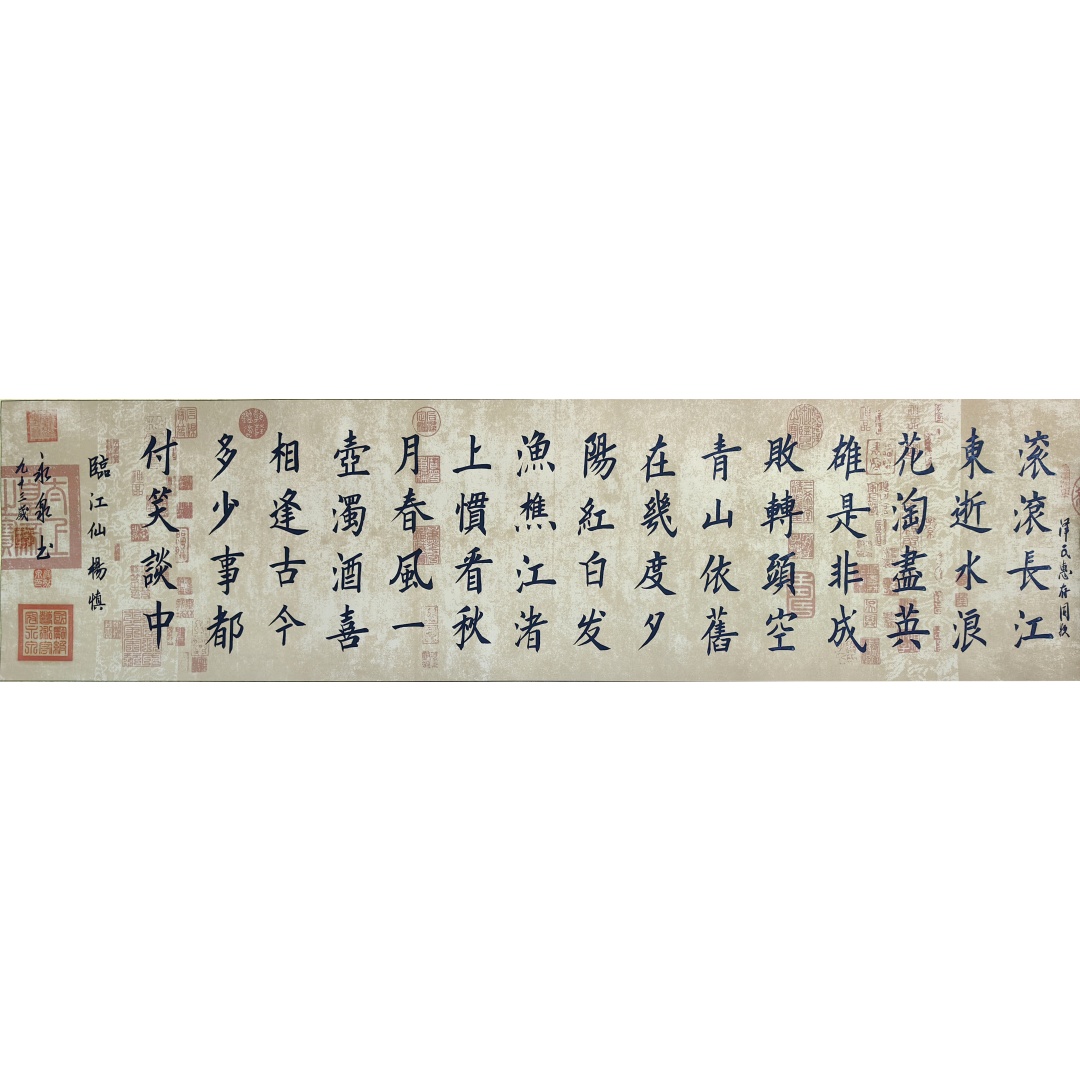 惠存
滚滾長江
東逝水浪
花淘盡英
雄是非成
敗轉頭空
青山依舊
在幾度夕
陽紅白发
漁樵江渚
上慣看秋
月春風一
壺濁酒喜
相逢古今
多少事都
付笑談中
臨江仙楊慎
永泉书
九十三歲